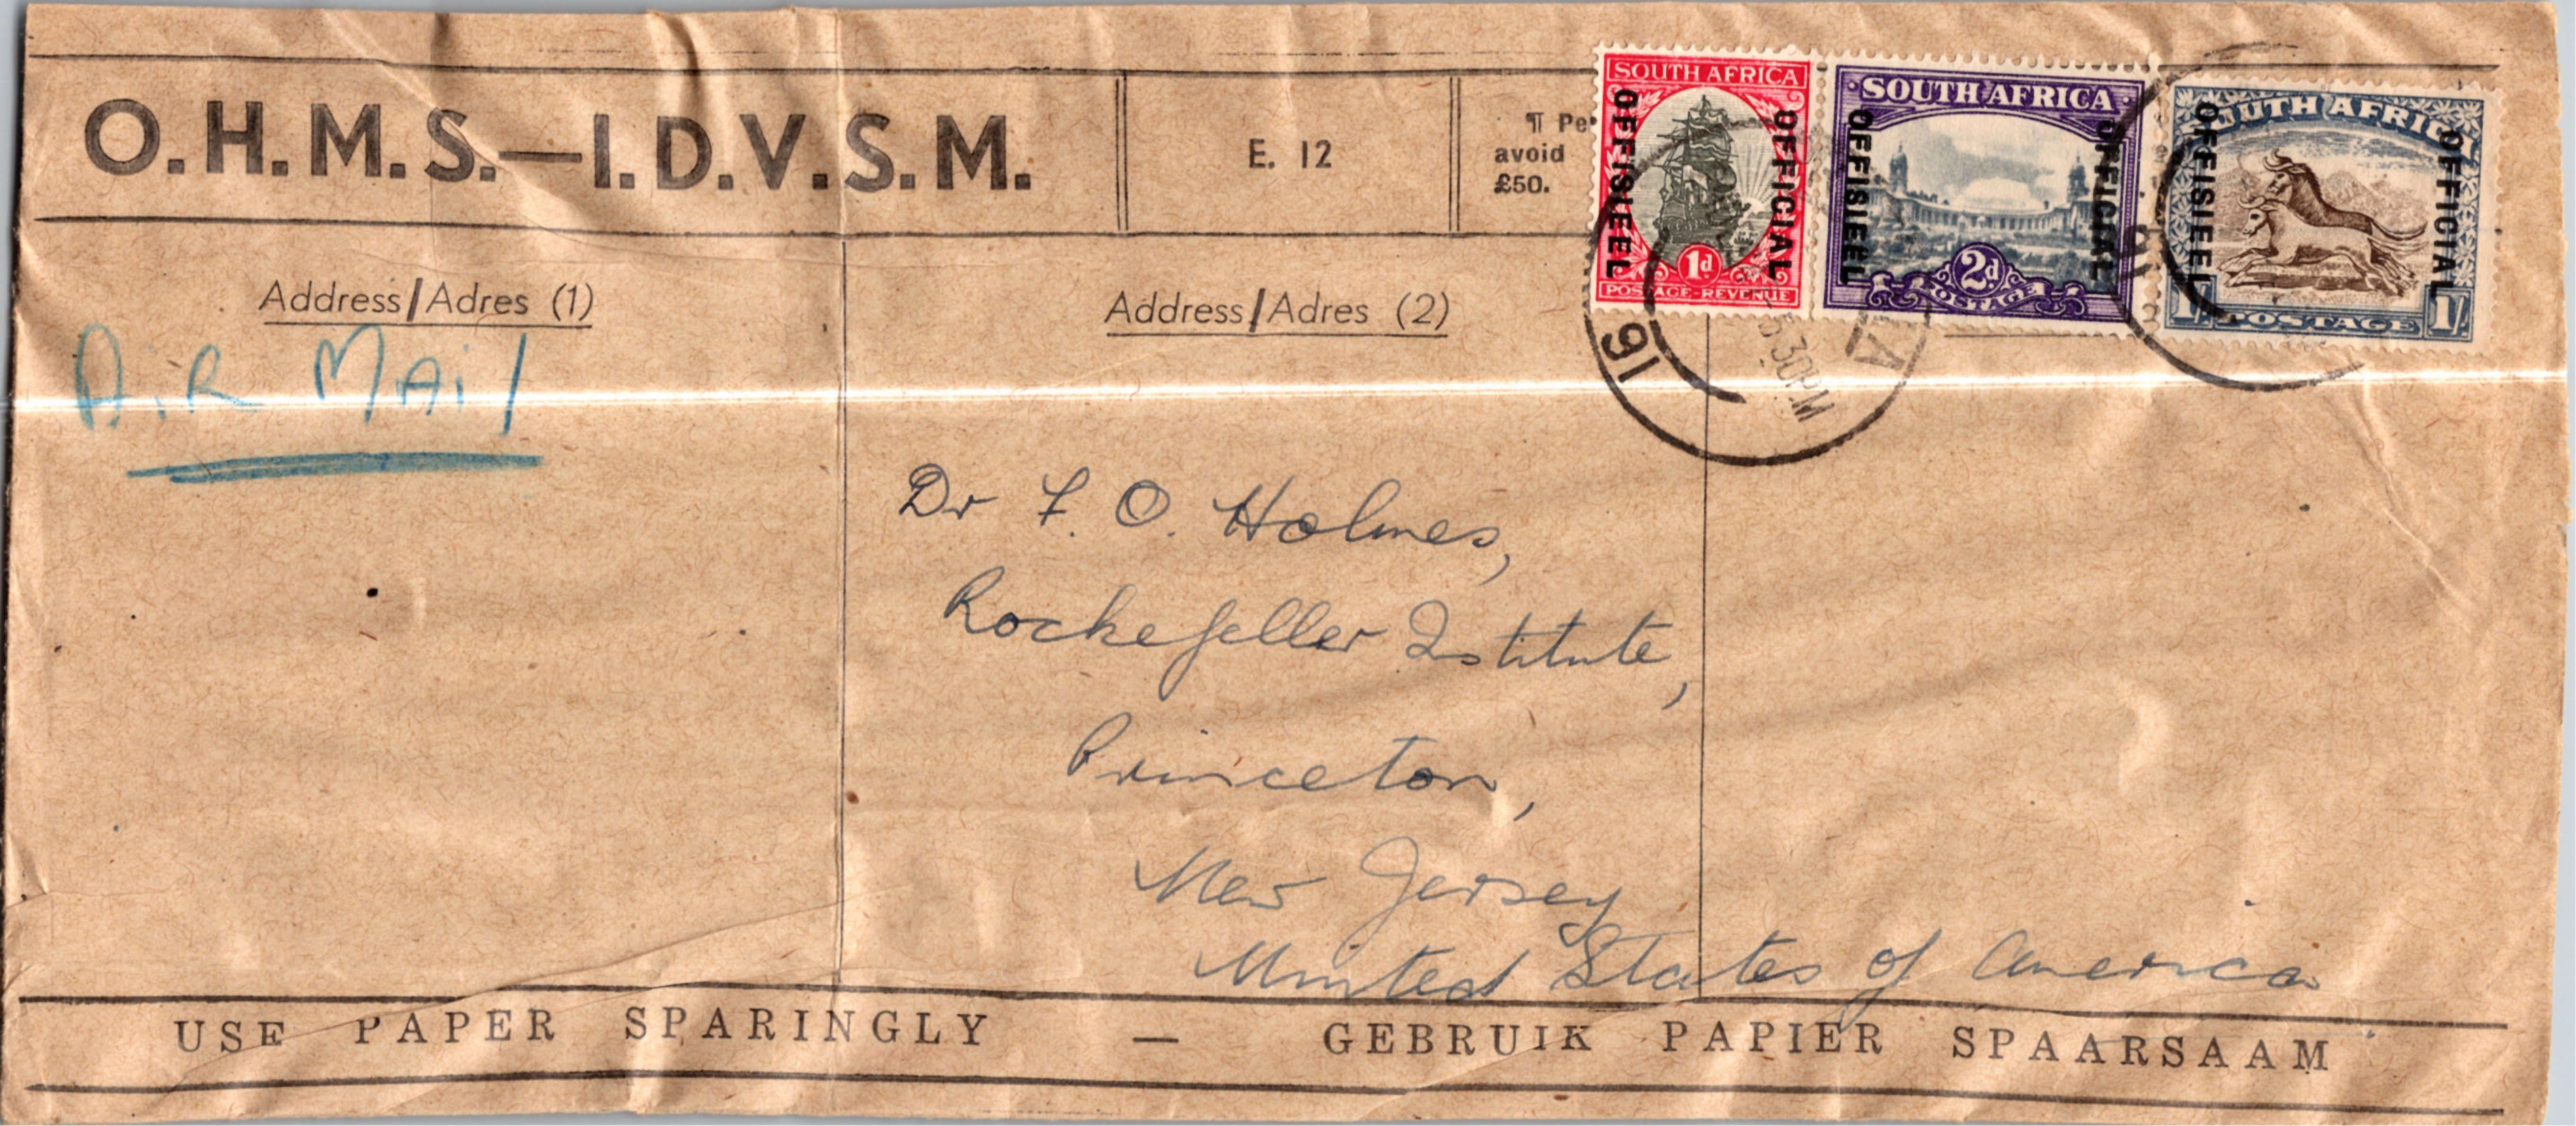 O.H.M.S.—I.D.V.S.M.
E. 12
¶ Pe
avoid
£50.
SOUTH AFRICA
OFFISIEEL
OFFICIAL
1d
POSTAGE-REVENUE
SOUTH AFRICA
OFFISIEEL
OFFICIAL
2d
POSTAGE
SOUTH AFRICA
OFFISIEEL
OFFICIAL
1/-
POSTAGE
1/-
16
5 30PM
A
Address/Adres (1)
Address/Adres (2)
AiR MAil
Dr F. O. Holmes,
Rockefeller Institute,
Princeton,
New Jersey
United States of America
USE PAPER SPARINGLY — GEBRUIK PAPIER SPAARSAAM